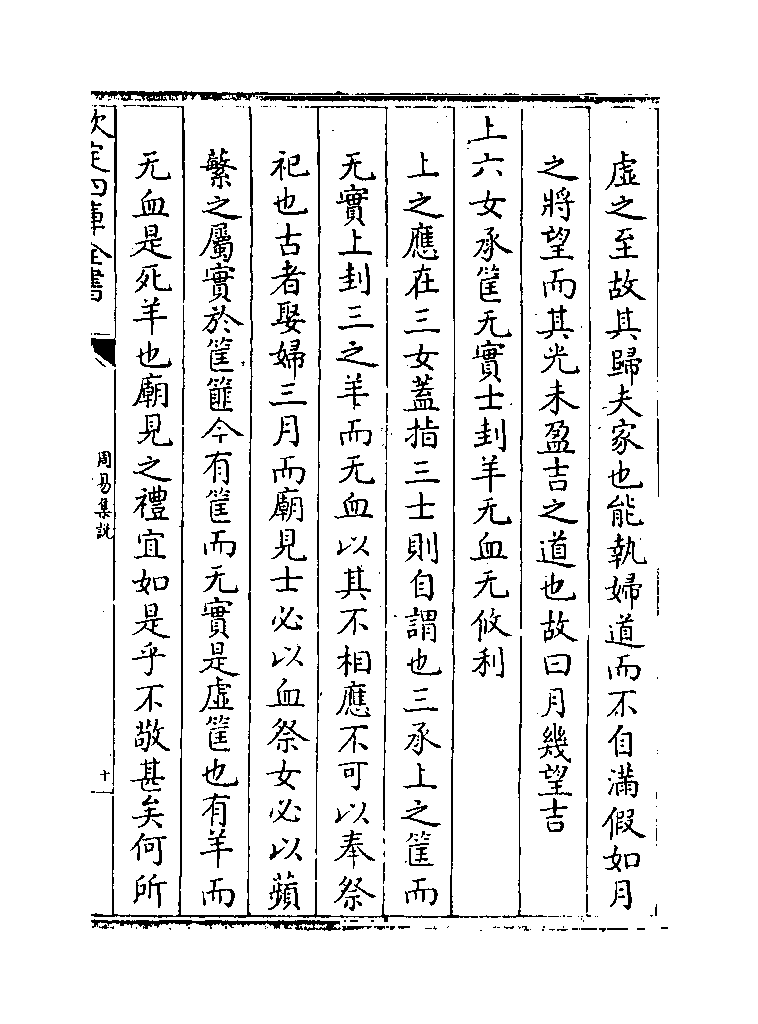 虛之至故其歸夫家也能執婦道而不自滿假如月
之將望而其光未盈吉之道也故曰月幾望吉
上六女承筐无實士刲羊无血无攸利
上之應在三女蓋指三士則自謂也三承上之筐而
无實上刲三之羊而无血以其不相應不可以奉祭
祀也古者娶婦三月而廟見士必以血祭女必以蘋
蘩之屬實於筐篚今有筐而无實是虛筐也有羊而
无血是死羊也廟見之禮宜如是乎不敬甚矣何所
欽定四庫全書
周易集說
十